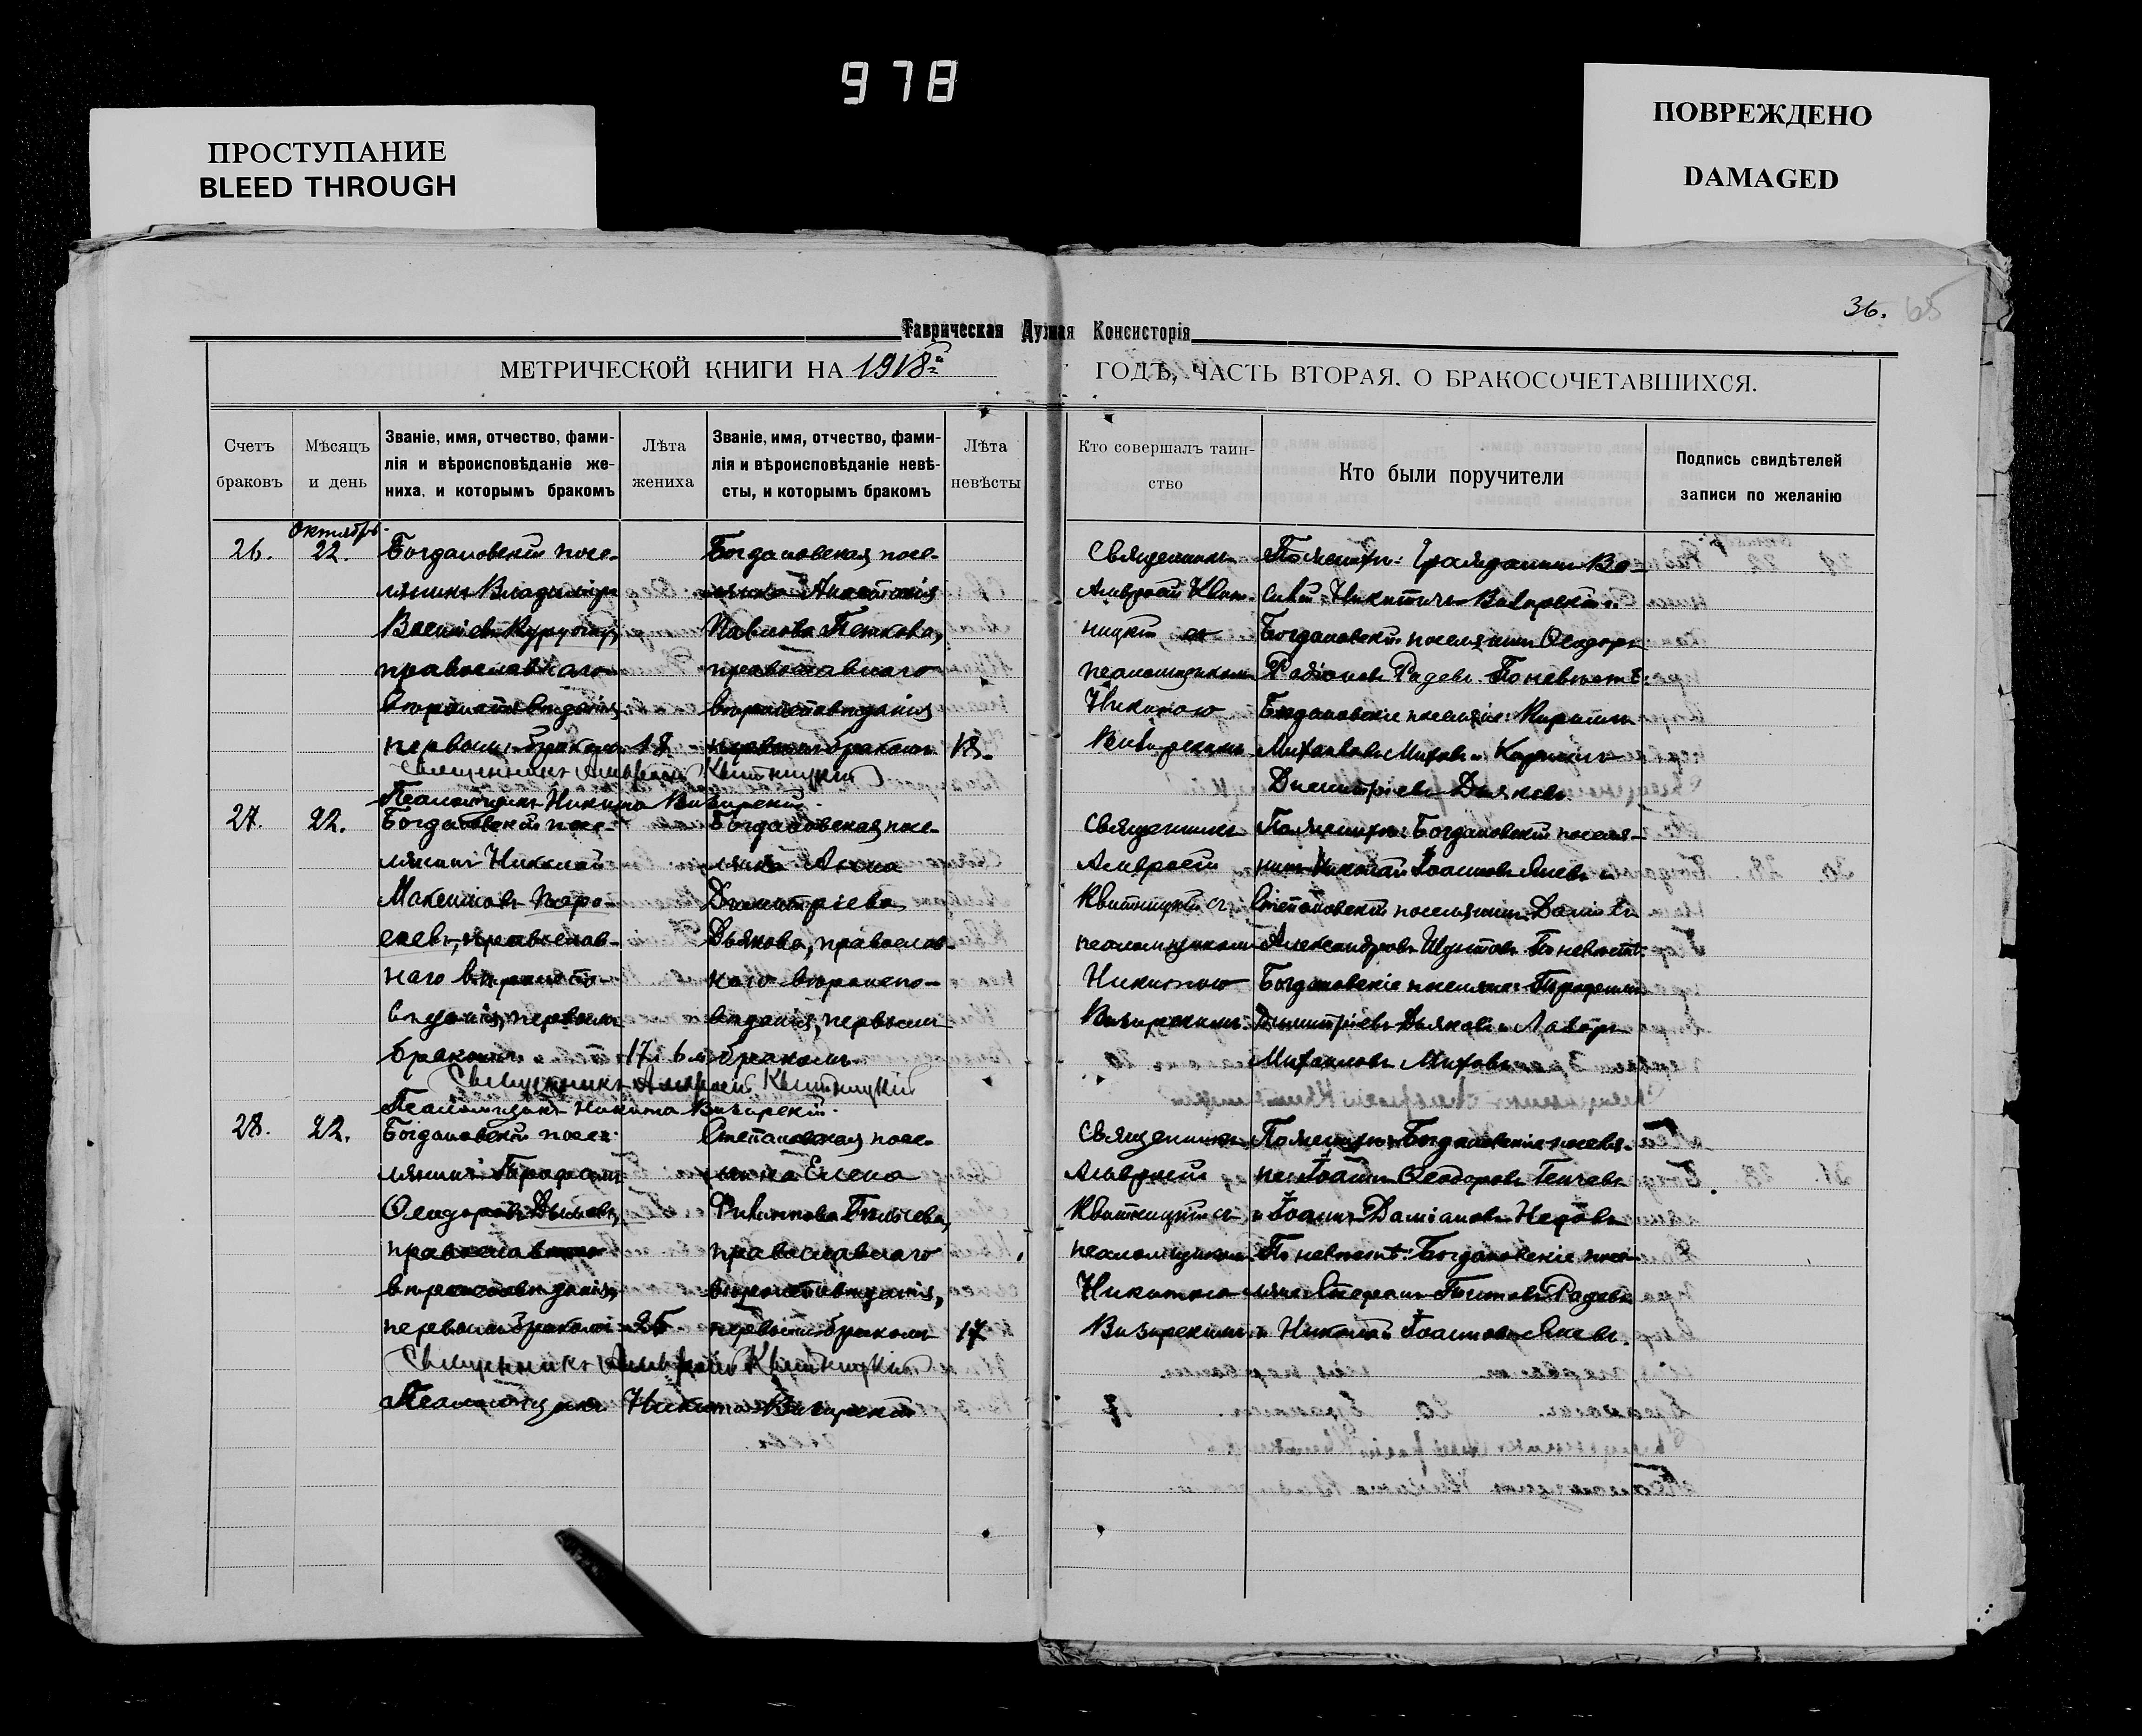 978
ПРОСТУПАНИЕ
BLEED THROUGH
ПОВРЕЖДЕНО
DAMAGED
36. 65
Таврическая Духная Консисторія
МЕТРИЧЕСКОЙ КНИГИ НА 1918й ГОДЪ, ЧАСТЬ ВТОРАЯ, О БРАКОСОЧЕТАВШИХСЯ.
Счетъ браковъ
Мѣсяцъ и день
Званіе, имя, отчество, фами-
лія и вѣроисповѣданіе же-
ниха, и которымъ бракомъ
Лѣта жениха
Званіе, имя, отчество, фами-
лія и вѣроисповѣданіе невѣ-
сты, и которымъ бракомъ
Лѣта невѣсты
Кто совершалъ таин-
ство
Кто были поручители
Подпись свидѣтелей
записи по желанію
Октябрь
26. 22. Богдановскій посе-
лянинъ Владиміръ
Васильевъ
православнаго
вѣроисповѣданія,
первымъ бракомъ 18
Богдановская посе-
лянка Анастасія
Павлова Петкова,
православнаго
вѣроисповѣданія
первымъ бракомъ 18.
Священникъ
Амвросій Квит-
ницкій съ
псаломщикомъ
Никитою
Визирскимъ
По женихѣ: Гражданинъ Ва-
силій Никитичъ Визирскій и
Богдановскій поселянинъ Ѳеодоръ
Радевъ. По невѣстѣ:
Богдановскіе поселяне: Кириллъ
Михаиловъ Миховъ и
Димитріевъ Дьяковъ.
Священникъ Амвросій Квитницкій
Псаломщикъ Никита Визирскій.
27. 22. Богдановскій посе-
лянинъ Николай
Максимовъ Пара-
скевъ, православ-
наго вѣроиспо-
вѣданія, первымъ
бракомъ 17 и 6 м.
Богдановская посе-
лянка Анна
Димитріева
Дьякова, православ-
наго вѣроиспо-
вѣданія, первымъ
бракомъ
Священникъ
Амвросій
Квитницкій съ
псаломщикомъ
Никитою
Визирскимъ.
По женихѣ: Богдановскій поселя-
нинъ Николай Іоанновъ Яневъ и
Степановскій поселянинъ
Александровъ Шустовъ. По невѣстѣ:
Богдановскіе поселяне:
Димитріевъ Дьяковъ и Лавръ
Михаиловъ Миховъ
Священникъ Амвросій Квитницкій
Псаломщикъ Никита Визирскій.
28. 22. Богдановскій посе-
лянинъ
Ѳеодоровъ
православнаго
вѣроисповѣданія,
первымъ бракомъ 25
Степановская посе-
лянка Елена
Филиппова
православнаго
вѣроисповѣданія,
первымъ бракомъ 17
Священникъ
Амвросій
Квитницкій съ
псаломщикомъ
Никитою
Визирскимъ
По женихѣ: Богдановскіе поселя-
не: Іоаннъ Ѳеодоровъ Генчевъ
и Іоаннъ Даміановъ Недовъ
По невѣстѣ: Богдановскіе посе-
ляне: Радевъ
и Николай Іоанновъ Яневъ.
Священникъ Амвросій Квитницкій
Псаломщикъ Никита Визирскій